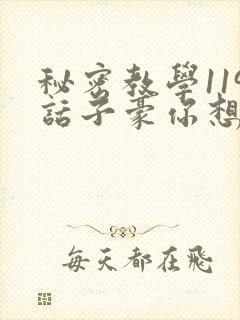 秘密教學119
話子豪你想
每天都在飛